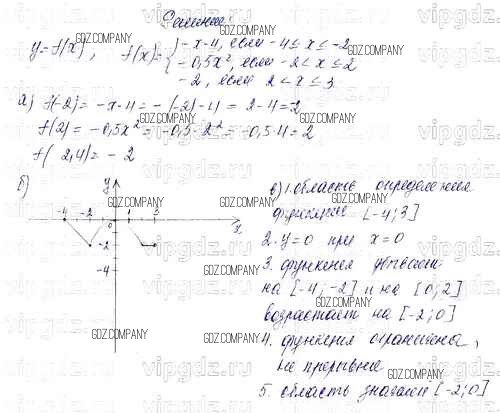 Решение:
y=f(x), f(x)= { -x-4, если -4≤x≤-2
-0,5x², если -2<x≤2
-2, если 2<x≤3
а) f(-2)= -x-4 = -(-2)-4 = 2-4=-2
f(2) = -0,5x² = -0,5·2² = -0,5·4=2
f( 2,4)= -2
б)
y
-4 -2 0 1 3 x
-2
-4
в) 1. область определения
функции [-4;3]
2. y=0 при x=0
3. функция убывает
на [-4;-2] и на [0;2]
возрастает на [-2;0]
4. функция ограничена,
не прерывна
5. область значений [-2;0]
GDZ.COMPANY
vipgdz.ru